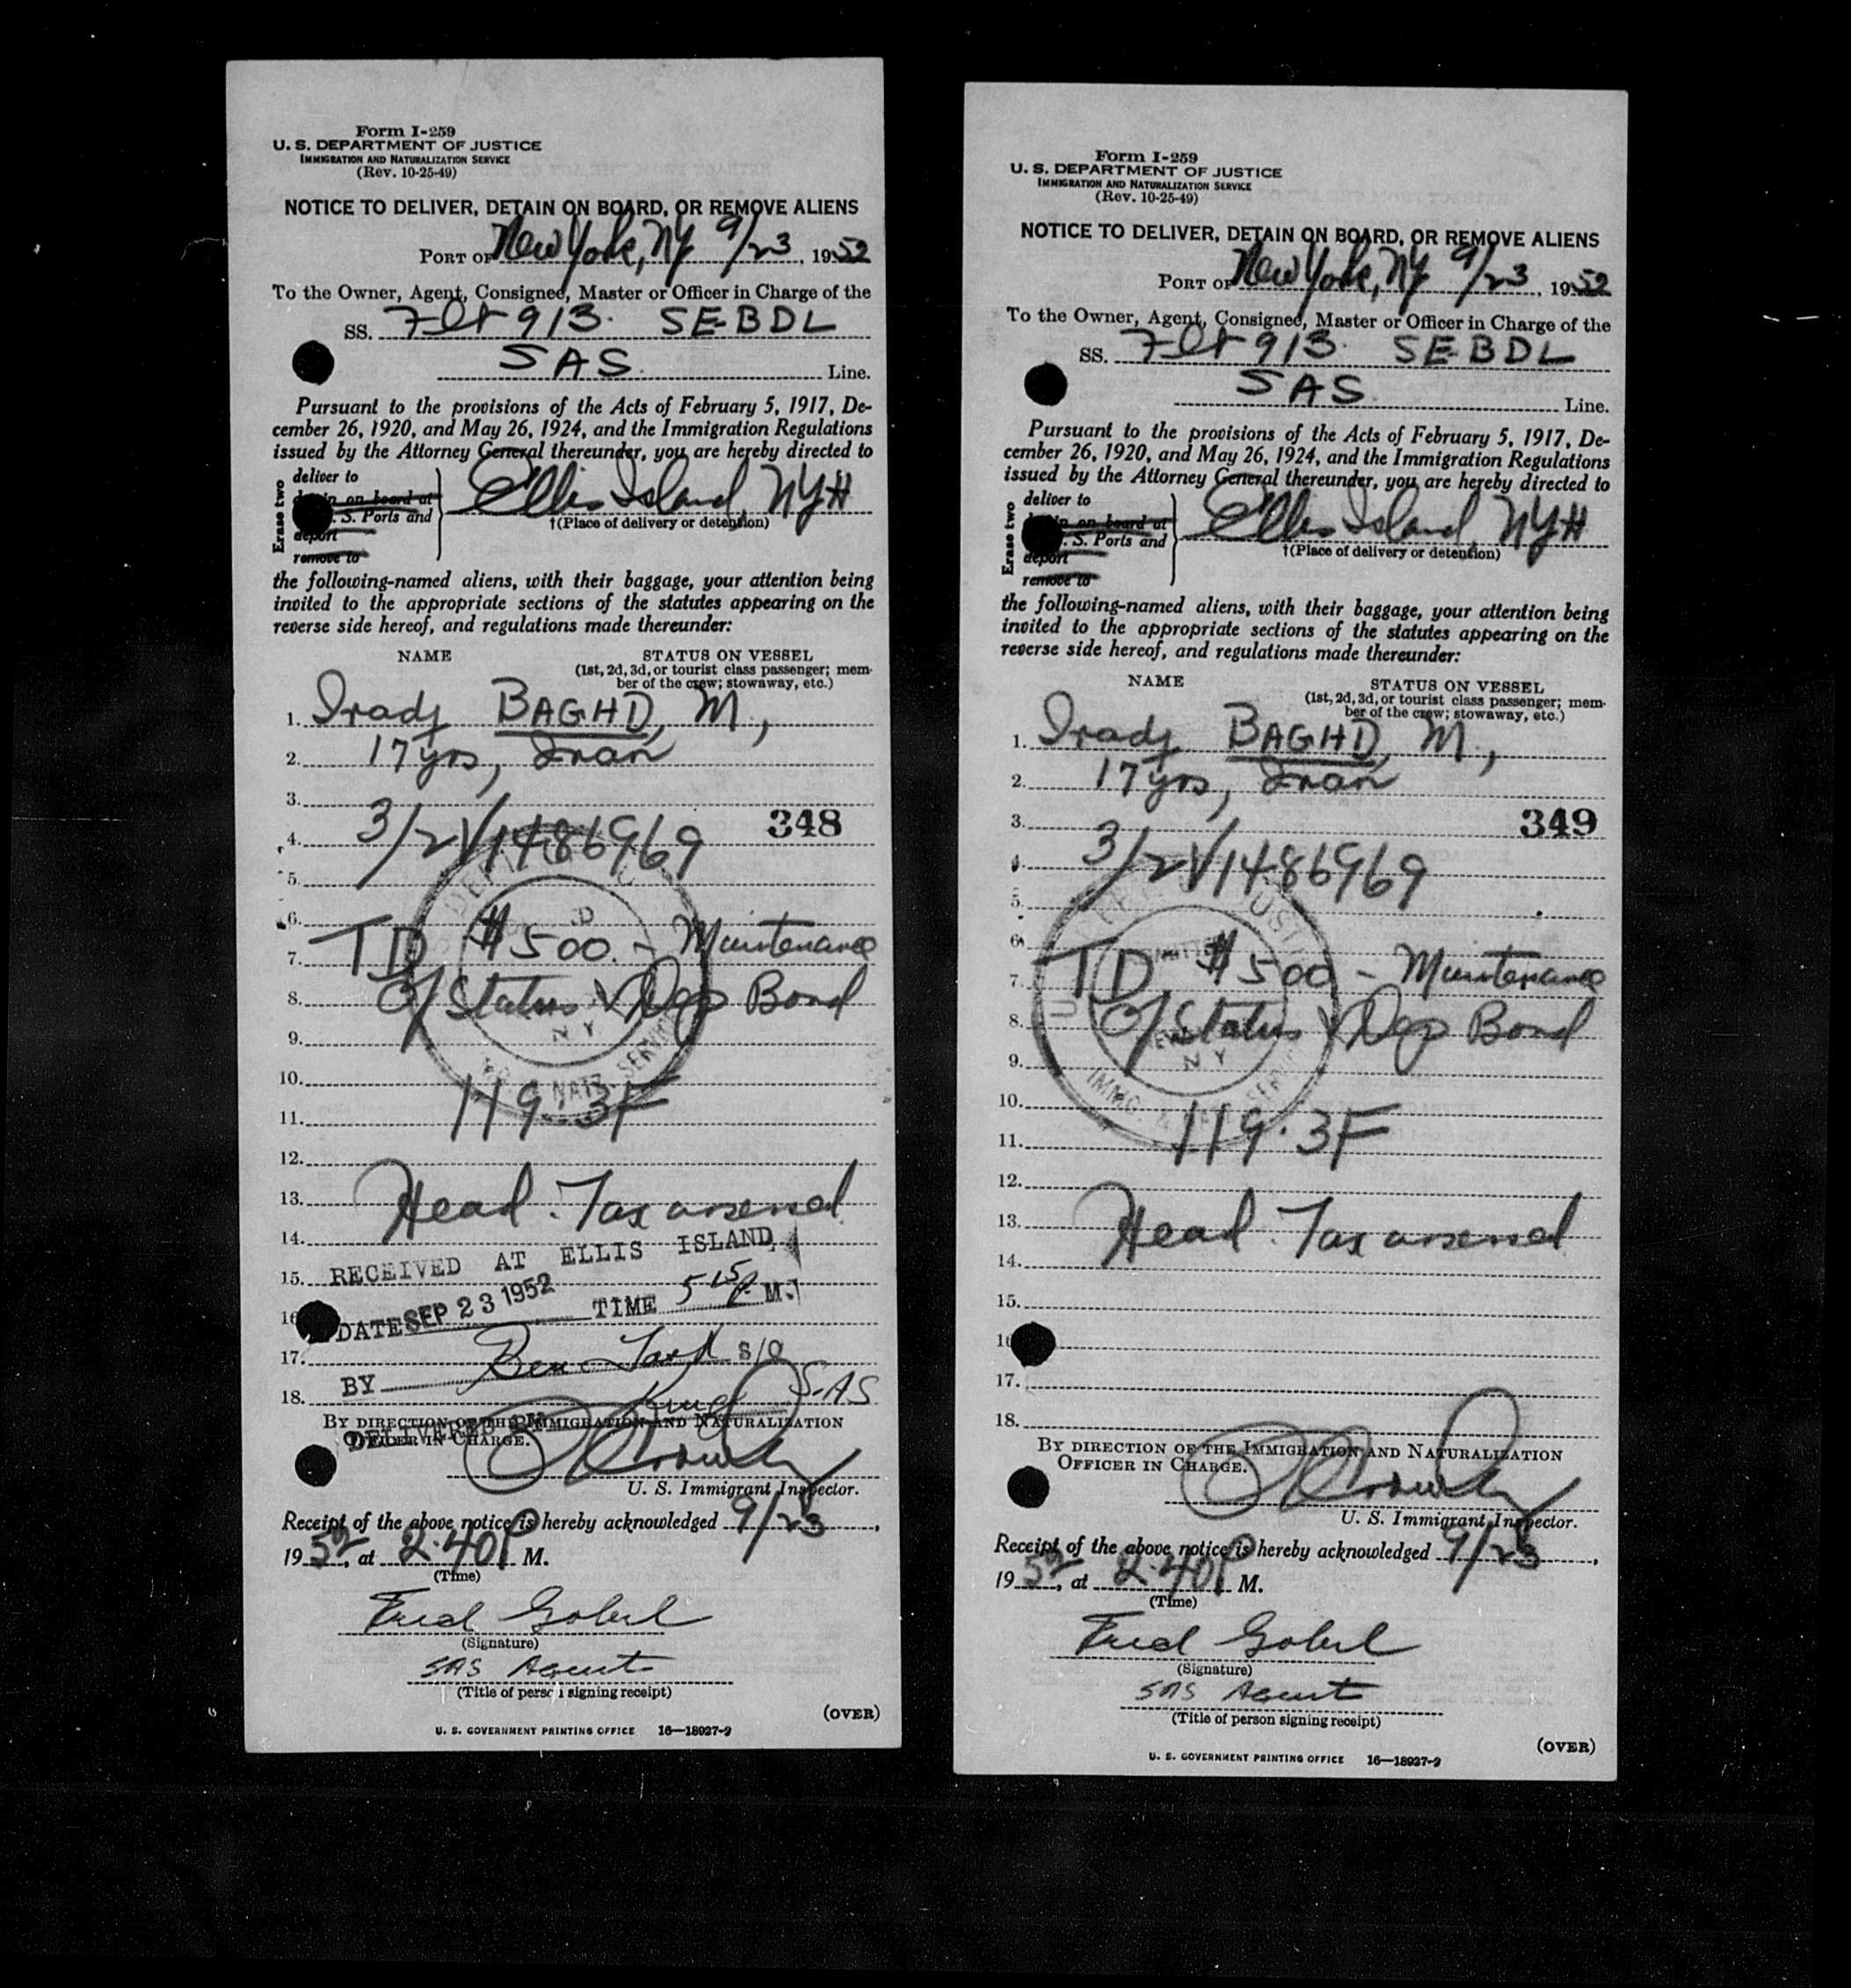 Form I-259
U. S. DEPARTMENT OF JUSTICE
IMMIGRATION AND NATURALIZATION SERVICE
(Rev. 10-25-49)
NOTICE TO DELIVER, DETAIN ON BOARD, OR REMOVE ALIENS
PORT OF New York, NY 9/23, 1952
To the Owner, Agent, Consignee, Master or Officer in Charge of the
SS. Flt 913. SE-BDL
SAS Line.
Pursuant to the provisions of the Acts of February 5, 1917, De-
cember 26, 1920, and May 26, 1924, and the Immigration Regulations
issued by the Attorney General thereunder, you are hereby directed to
Erase two
deliver to
on board at
. S. Ports and
deport
remove to
Ellis Island, NYH
†(Place of delivery or detention)
the following-named aliens, with their baggage, your attention being
invited to the appropriate sections of the statutes appearing on the
reverse side hereof, and regulations made thereunder:
NAME
STATUS ON VESSEL
(1st, 2d, 3d, or tourist class passenger; mem-
ber of the crew; stowaway, etc.)
1. Iradj BAGHD, M,
2. 17 yrs, Iran
3.
348
4. 3/2 V1486969
5.
6.
7. TD $500. - Maintenance
8. of Status & Dep Bond
N Y
9.
10.
11. 119.3F
12.
13. Head Tax assessed
14.
15. RECEIVED AT ELLIS ISLAND
16. DATE SEP 23 1952 TIME 5 15 P. M.
17.
BY Ben S/O
18. SAS
DELIVERED BY
BY DIRECTION OF THE IMMIGRATION AND NATURALIZATION
OFFICER IN CHARGE.
U. S. Immigrant Inspector.
Receipt of the above notice is hereby acknowledged 9/23,
1952, at 2.40P M.
(Time)
Fred Gobel
(Signature)
SAS Agent
(Title of person signing receipt)
(OVER)
U. S. GOVERNMENT PRINTING OFFICE 16—18927-2
Form I-259
U. S. DEPARTMENT OF JUSTICE
IMMIGRATION AND NATURALIZATION SERVICE
(Rev. 10-25-49)
NOTICE TO DELIVER, DETAIN ON BOARD, OR REMOVE ALIENS
PORT OF New York, NY 9/23, 1952
To the Owner, Agent, Consignee, Master or Officer in Charge of the
SS. Flt 913. SE-BDL
SAS Line.
Pursuant to the provisions of the Acts of February 5, 1917, De-
cember 26, 1920, and May 26, 1924, and the Immigration Regulations
issued by the Attorney General thereunder, you are hereby directed to
Erase two
deliver to
on board at
. S. Ports and
deport
remove to
Ellis Island, NYH
†(Place of delivery or detention)
the following-named aliens, with their baggage, your attention being
invited to the appropriate sections of the statutes appearing on the
reverse side hereof, and regulations made thereunder:
NAME
STATUS ON VESSEL
(1st, 2d, 3d, or tourist class passenger; mem-
ber of the crew; stowaway, etc.)
1. Iradj BAGHD, M,
2. 17 yrs, Iran
3.
349
4. 3/2 V1486969
5.
6.
7. TD $500 - Maintenance
8. of Status & Dep Bond
N Y
9.
10.
11. 119.3F
12.
13. Head Tax assessed
14.
15.
16
17.
18.
BY DIRECTION OF THE IMMIGRATION AND NATURALIZATION
OFFICER IN CHARGE.
U. S. Immigrant Inspector.
Receipt of the above notice is hereby acknowledged 9/23,
1952, at 2.40P M.
(Time)
Fred Gobel
(Signature)
SAS Agent
(Title of person signing receipt)
(OVER)
U. S. GOVERNMENT PRINTING OFFICE 16—18927-2